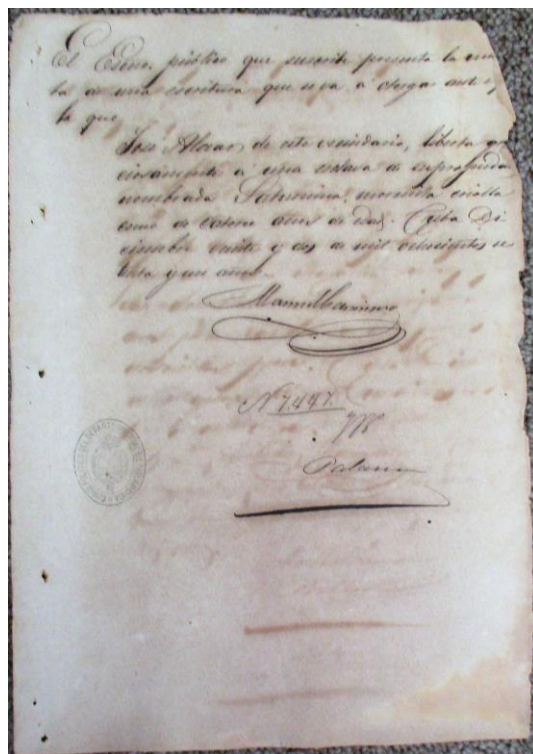 El Esno. público que suscribe presenta la mi
ta de una escritura que se va a otorgar ante
la que
José Alvar de este vecindario, liberta gra
ciosamente a una esclava de su propiedad
nombrada Saturnina, morenita criolla
como de catorce años de edad. Cuba Di
ciembre veinte y dos de mil ochocientos se
senta y un años.
Manuel
N 7.447.